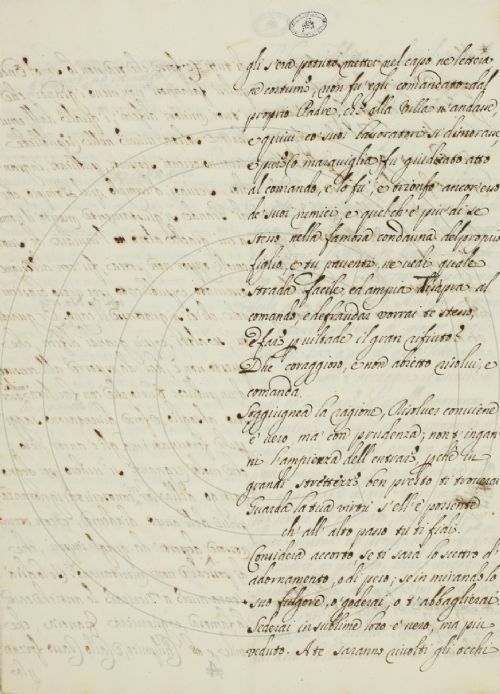 gli s'era potuto metter nel capo ne lettera
ne costume, non fu egli comandato dal
proprio Padre, che alla Villa n'andasse,
e quivi co suoi lavoratori si dimorasse,
e pur (o maraviglia) fu giudicato atto
al comando, e lo fu, e trionfò ancor esso
de suoi nemici, e quel ch'è più di se
stesso, nella famosa condanna del proprio
figlio, e tu paventi, ne vedi quale
strada facile ed ampia ti s'apra al
comando, e defraudar vorrai te stesso,
e farai p viltade il gran rifiuto?
Dhe coraggioso, e non abietto risolvi, e
comanda.
Soggiugnea la ragione, Risolver conviene
è vero, ma con prudenza; non t'ingan-
ni l'ampiezza dell'entrare, pchè in
grandi strettezze ben presto ti troverai
Guarda la tua virtù s'ell'è possente
ch'all'alto passo tu ti fidi.
Considera accorto, se ti sarà lo scettro d'
adornamento, o di peso; se in mirando lo
suo fulgore, o goderai, o t'abbaglierai.
Sederai in sublime loco è vero, ma più
veduto. A te saranno rivolti gli occhi